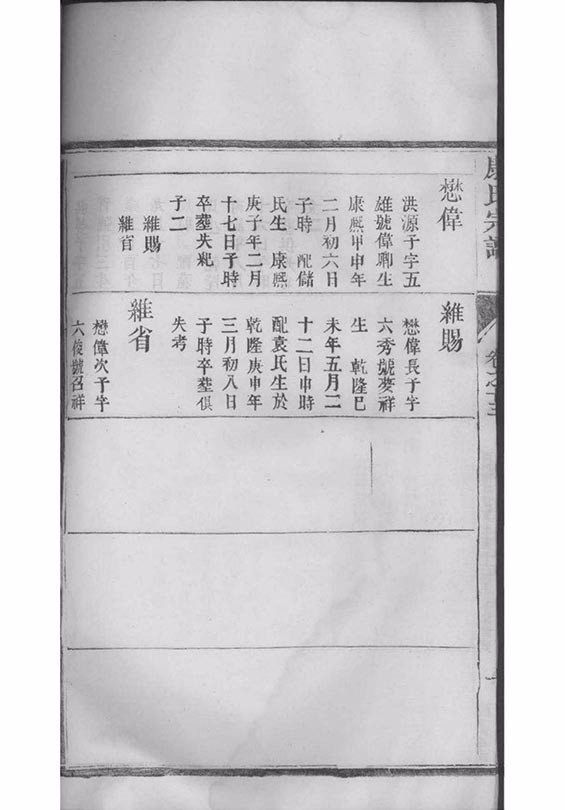 氏宗譜
卷之十三
懋偉
洪源子字五
雄號偉期生
康熙甲申年
二月初六日
子時 配儲
氏生 康熙
庚子年二月
十七日子時
卒葬失紀
子二
維賜
維省
維賜
懋偉長子字
六秀號夢祥
生 乾隆巳
未年五月二
十二日申時
配袁氏生於
乾隆庚申年
三月初八日
子時卒葬俱
失考
維省
懋偉次子字
六俊號召祥